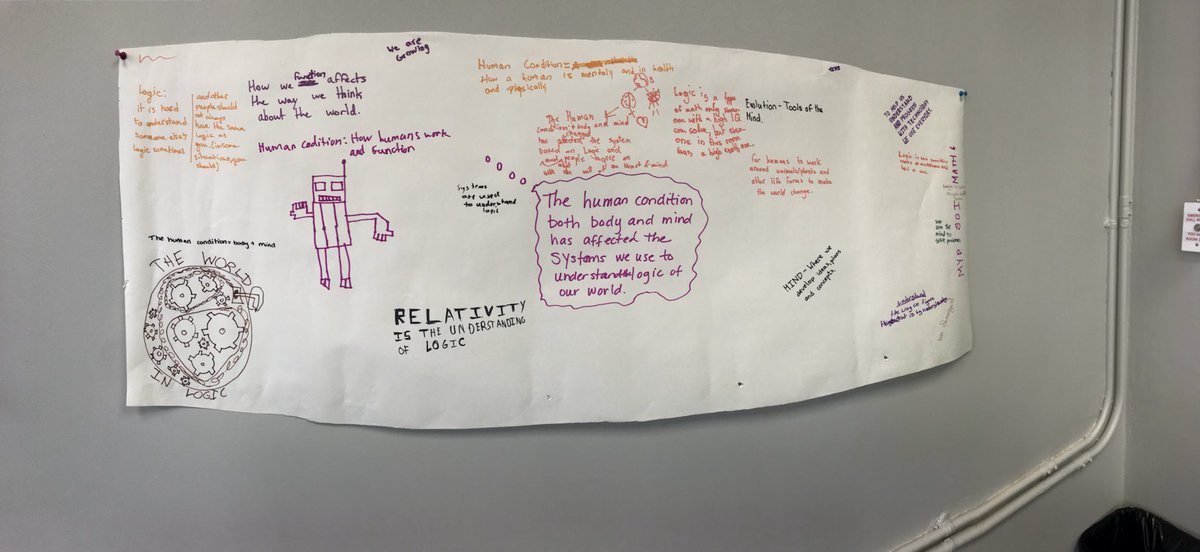 we are
Growing
Logic:
it is hard
to understand
someone else's
logic somtimes
and other
people should
not always
have the same
logic as
you.(in some
situations, you
should)
How we Function affects
the way we think
about the world.
Human Codition: How humans work
and Function
Human Condition=
How a human is mentally and in health
and physically
The Human
Condition: body and mind
changed
has affected the system
based on Logic and
people agree on
Logic is a type
of math only some-
one with a high IQ
can solve, but ever-
one in this room
Evolution - Tools of the
Mind.
For humans to work
around animals/plants and
other life forms to make
the world change.
TO HELP US
UNDERSTAND
AND PROGRESS
WITH TECHNOLOGY
WE USE EVERYDAY.
Systems
are used
to understand
logic
The human condition
both body and mind
has affected the
Systems we use to
understand logic of
our world.
The human condition= body + mind
THE WORLD
IN LOGIC
RELATIVITY
IS THE UNDERSTANDING
OF LOGIC
MIND - Where we
develop ideas, plans
and concepts
We use the
mind to
solve problems
MYP
MATH 6
understand
the way we Figure